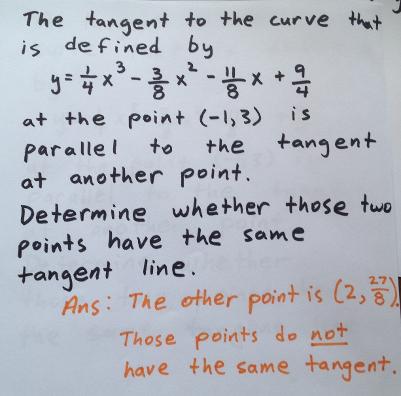 The tangent to the curve that
is defined by
y = 1/4 x³ - 3/8 x² - 11/8 x + 9/4
at the point (-1,3) is
parallel to the tangent
at another point.
Determine whether those two
points have the same
tangent line.
Ans: The other point is (2, 27/8).
Those points do not
have the same tangent.